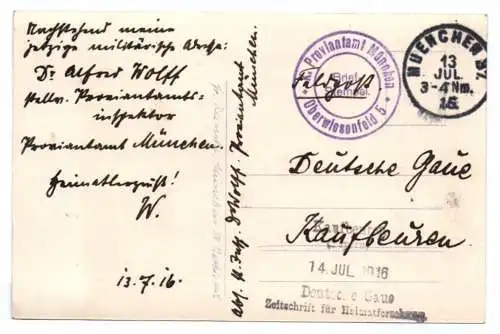 Nachstehend meine
jetzige militärische Adresse:
Dr Alfred Wolff
stellv. Proviantamts-
inspektor
Proviantamt München.
Heimatlergruß!
W.
13.7.16.
Abs. Wolff, Proviantamt
München.
Proviantamt München
Brief-
stempel
* Oberwiesenfeld 5 *
Feldpost
MUENCHEN 37
13
JUL.
3-4 Nm.
16
Deutsche Gaue
Kaufbeuren
14 JUL. 1916
Deutsche Gaue
Zeitschrift für Heimatforschung.